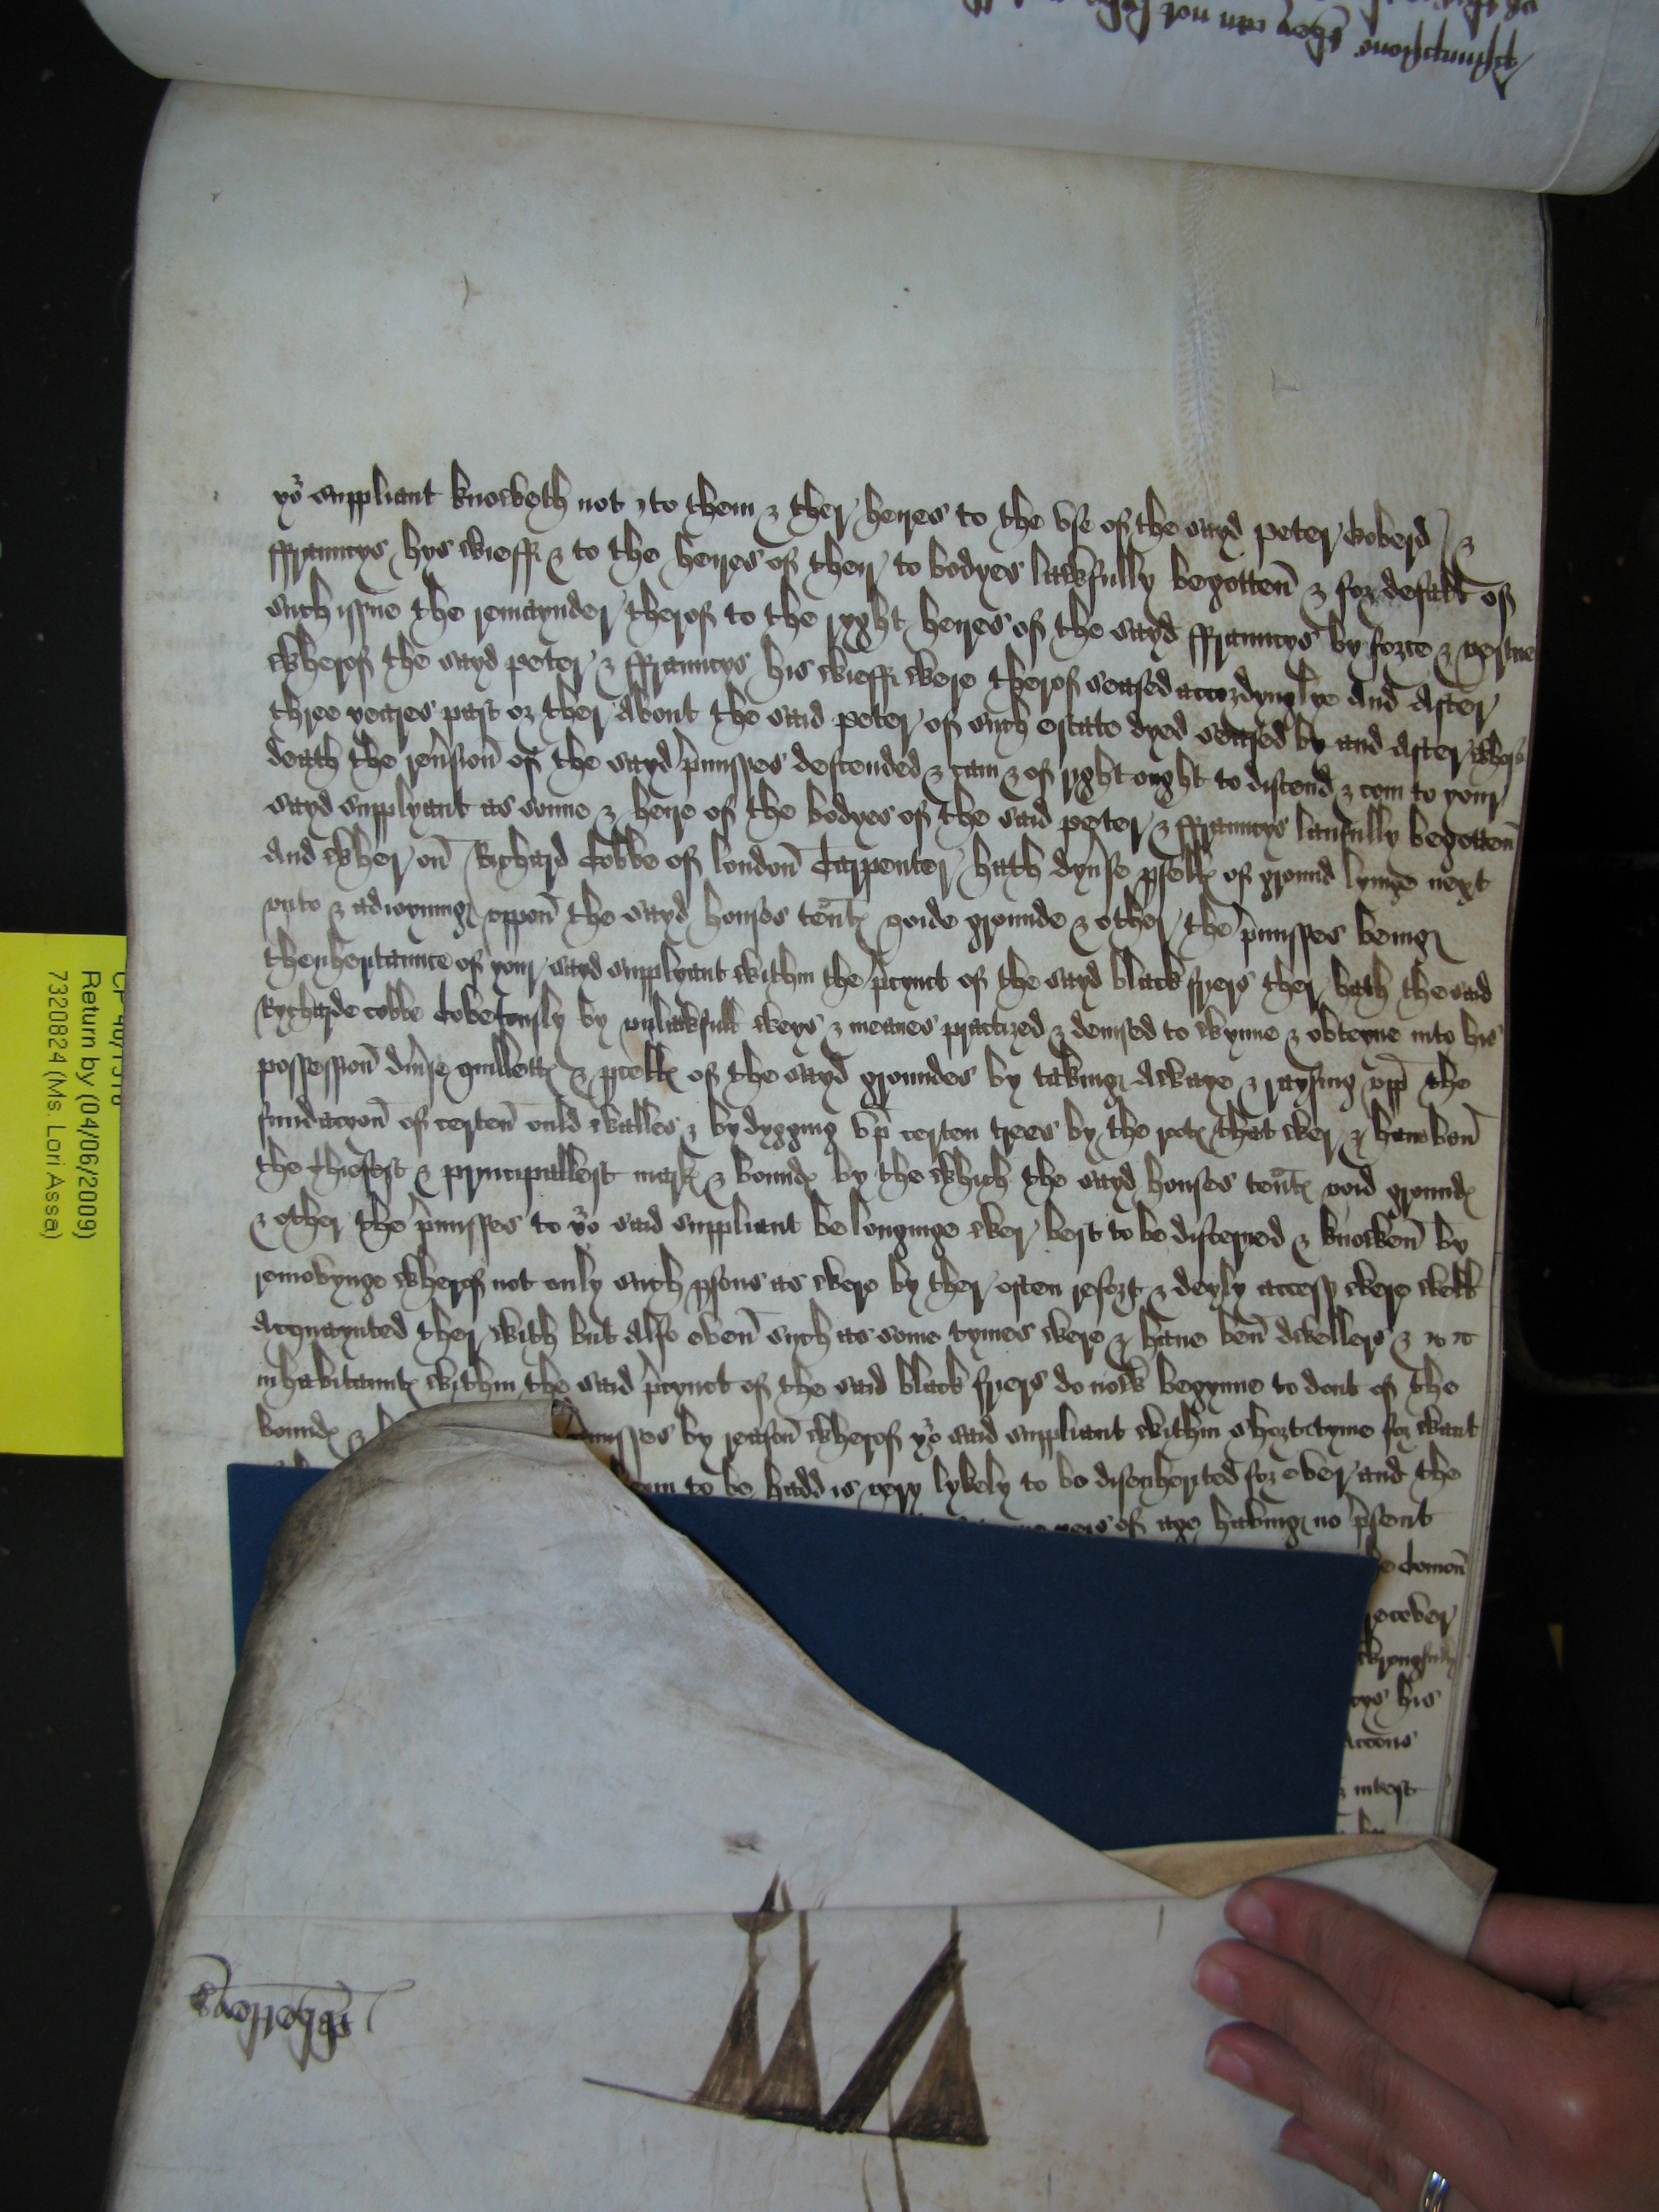 yor suppliant knoweth not, to them & ther heires to the vse of the sayd peter & &
ffrauncys hys wieff & to the heires of their to bodyes lawfully begotten & for defalt of
such issue the remaynder therof to the ryght heires of the sayd ffrauncys by force & vertue
wherof the sayd peter & ffrauncys his wieff were therof seased accordynglye And After
three yeares past or ther About the said peter of such estate dyed seased by and After whos
death the reusion of the sayd pmisses descended & cam & of right ought to discend & com to your
sayd supplyant as sonne & heire of the bodyes of the said peter & ffrauncys laufully begotten
And wher on Richard Cobbe of london Carpenter hath dyuse psells of ground lyinge next
vnto & adioyning vppon the sayd houses tents voide grounde & other the pmisses being
thenheritaunce of your sayd supplyant within the pcynct of the sayd black fryers ther hath the said
Rycharde cobbe Covetously by vnlawfull weys & meanes practized & deuised to wynne & obteyne into his
possession diuse quilletts & pcells of the sayd groundes by taking Awaye & raysing vpp the
fundacyon of certen ould walles & by dygging vp certen trees by the rots that wer & haue ben
the chiefest & pryncipallest marks & bounds by the which the sayd houses tents void grounds
& other the pmisses to yor said suppliant belonginge wer best to be discerned & knowen by
removynge wherof not only such psons as were by ther often resort & deyly access were well
Acquaynted ther with but Also even such as some tymes were & haue ben dwellers &
inhabitaunts within the said pcynct of the said black fryers do now begynne to dout of the
bounds & pmisses by reason wherof yor said suppliant within short tyme for want
to be hadd is very lykely to be disenherited for ever and the
yers of age having no psent
comon
recover
wrongfully
his
Accons
& interest
by
Return by (04/06/2009)
7320824 (Ms. Lori Assa)